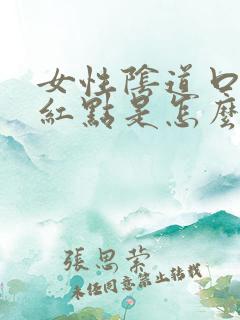 女性陰道口
紅點是怎麼
張思縈
未经同意禁止转载